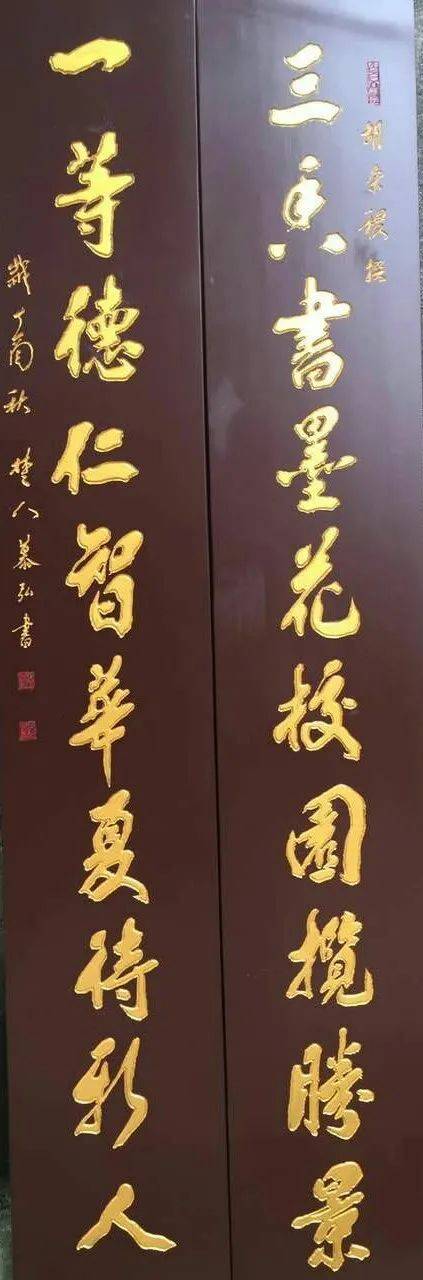 三香书墨花校园揽胜景
一等德仁智华夏待新人
岁丁酉秋 楚人慕弘书